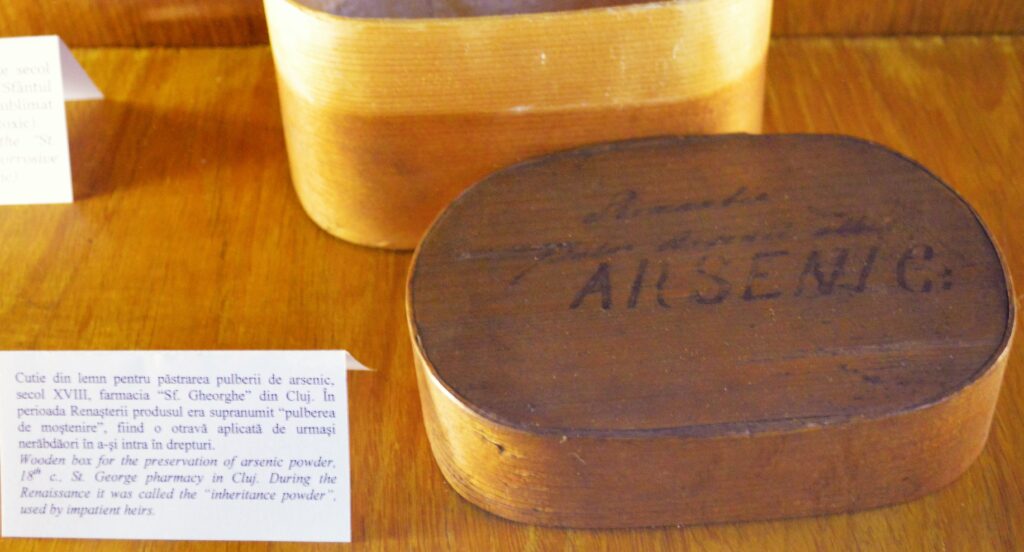 e secol
"Sfântul
ublimat
toxic)
the "St
orrosive
ic)
ARSENIC:
Cutie din lemn pentru păstrarea pulberii de arsenic,
secol XVIII, farmacia "Sf. Gheorghe" din Cluj. În
perioada Renaşterii produsul era supranumit "pulberea
de moştenire", fiind o otravă aplicată de urmaşi
nerăbdăori în a-şi intra în drepturi.
Wooden box for the preservation of arsenic powder,
18th c., St. George pharmacy in Cluj. During the
Renaissance it was called the "inheritance powder",
used by impatient heirs.